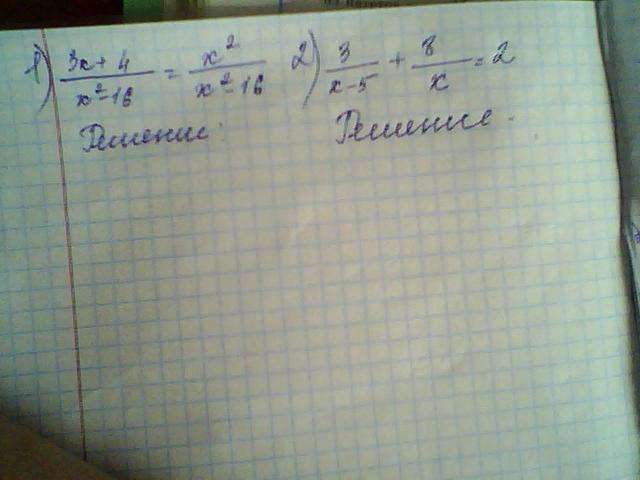 1) (3x+4)/(x²-16) = x²/(x²-16) 2) 3/(x-5) + 8/x = 2
Решение: Решение.